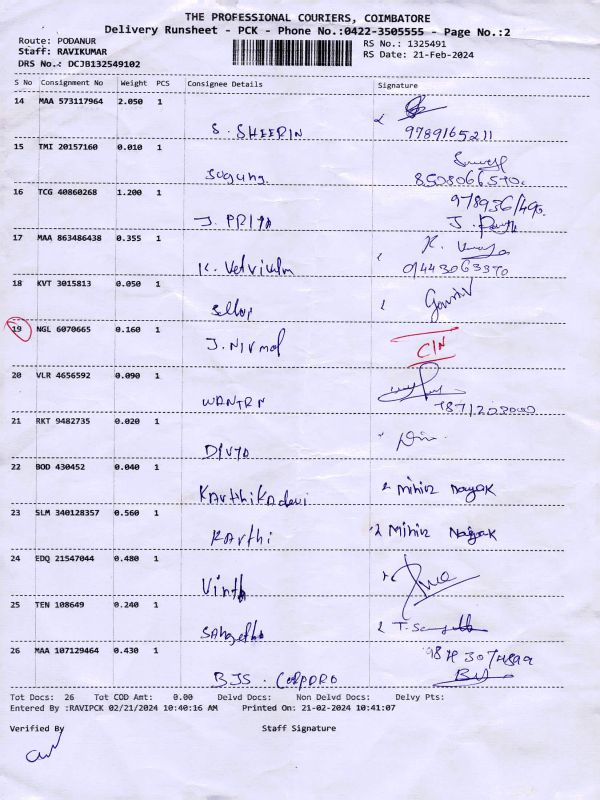 THE PROFESSIONAL COURIERS, COIMBATORE
Delivery Runsheet - PCK - Phone No.:0422-3505555 - Page No.:2
Route: PODANUR
RS No.: 1325491
Staff: RAVIKUMAR
RS Date: 21-Feb-2024
DRS No.: DCJB132549102
S No Consignment No Weight PCS Consignee Details Signature
14 MAA 573117964 2.050 1
S. SHEERIN 9789165211
15 TMI 20157160 0.010 1
Suguna.
16 TCG 40860268 1.200 1
J. PRIYA J.
17 MAA 863486438 0.355 1
K. Vetrivelm K.
18 KVT 3015813 0.050 1
19 NGL 6070665 0.160 1
J. Nirmal C/N
20 VLR 4656592 0.090 1
21 RKT 9482735 0.020 1
DIVYA
22 BOD 430452 0.040 1
Karthikadevi Mihir Nayak
23 SLM 340128357 0.560 1
Karthi Mihir Nayak
24 EDQ 21547044 0.480 1
25 TEN 108649 0.240 1
Sangetha
26 MAA 107129464 0.430 1
BJS.
Tot Docs: 26 Tot COD Amt: 0.00 Delvd Docs: Non Delvd Docs: Delvy Pts:
Entered By :RAVIPCK 02/21/2024 10:40:16 AM Printed On: 21-02-2024 10:41:07
Verified By Staff Signature